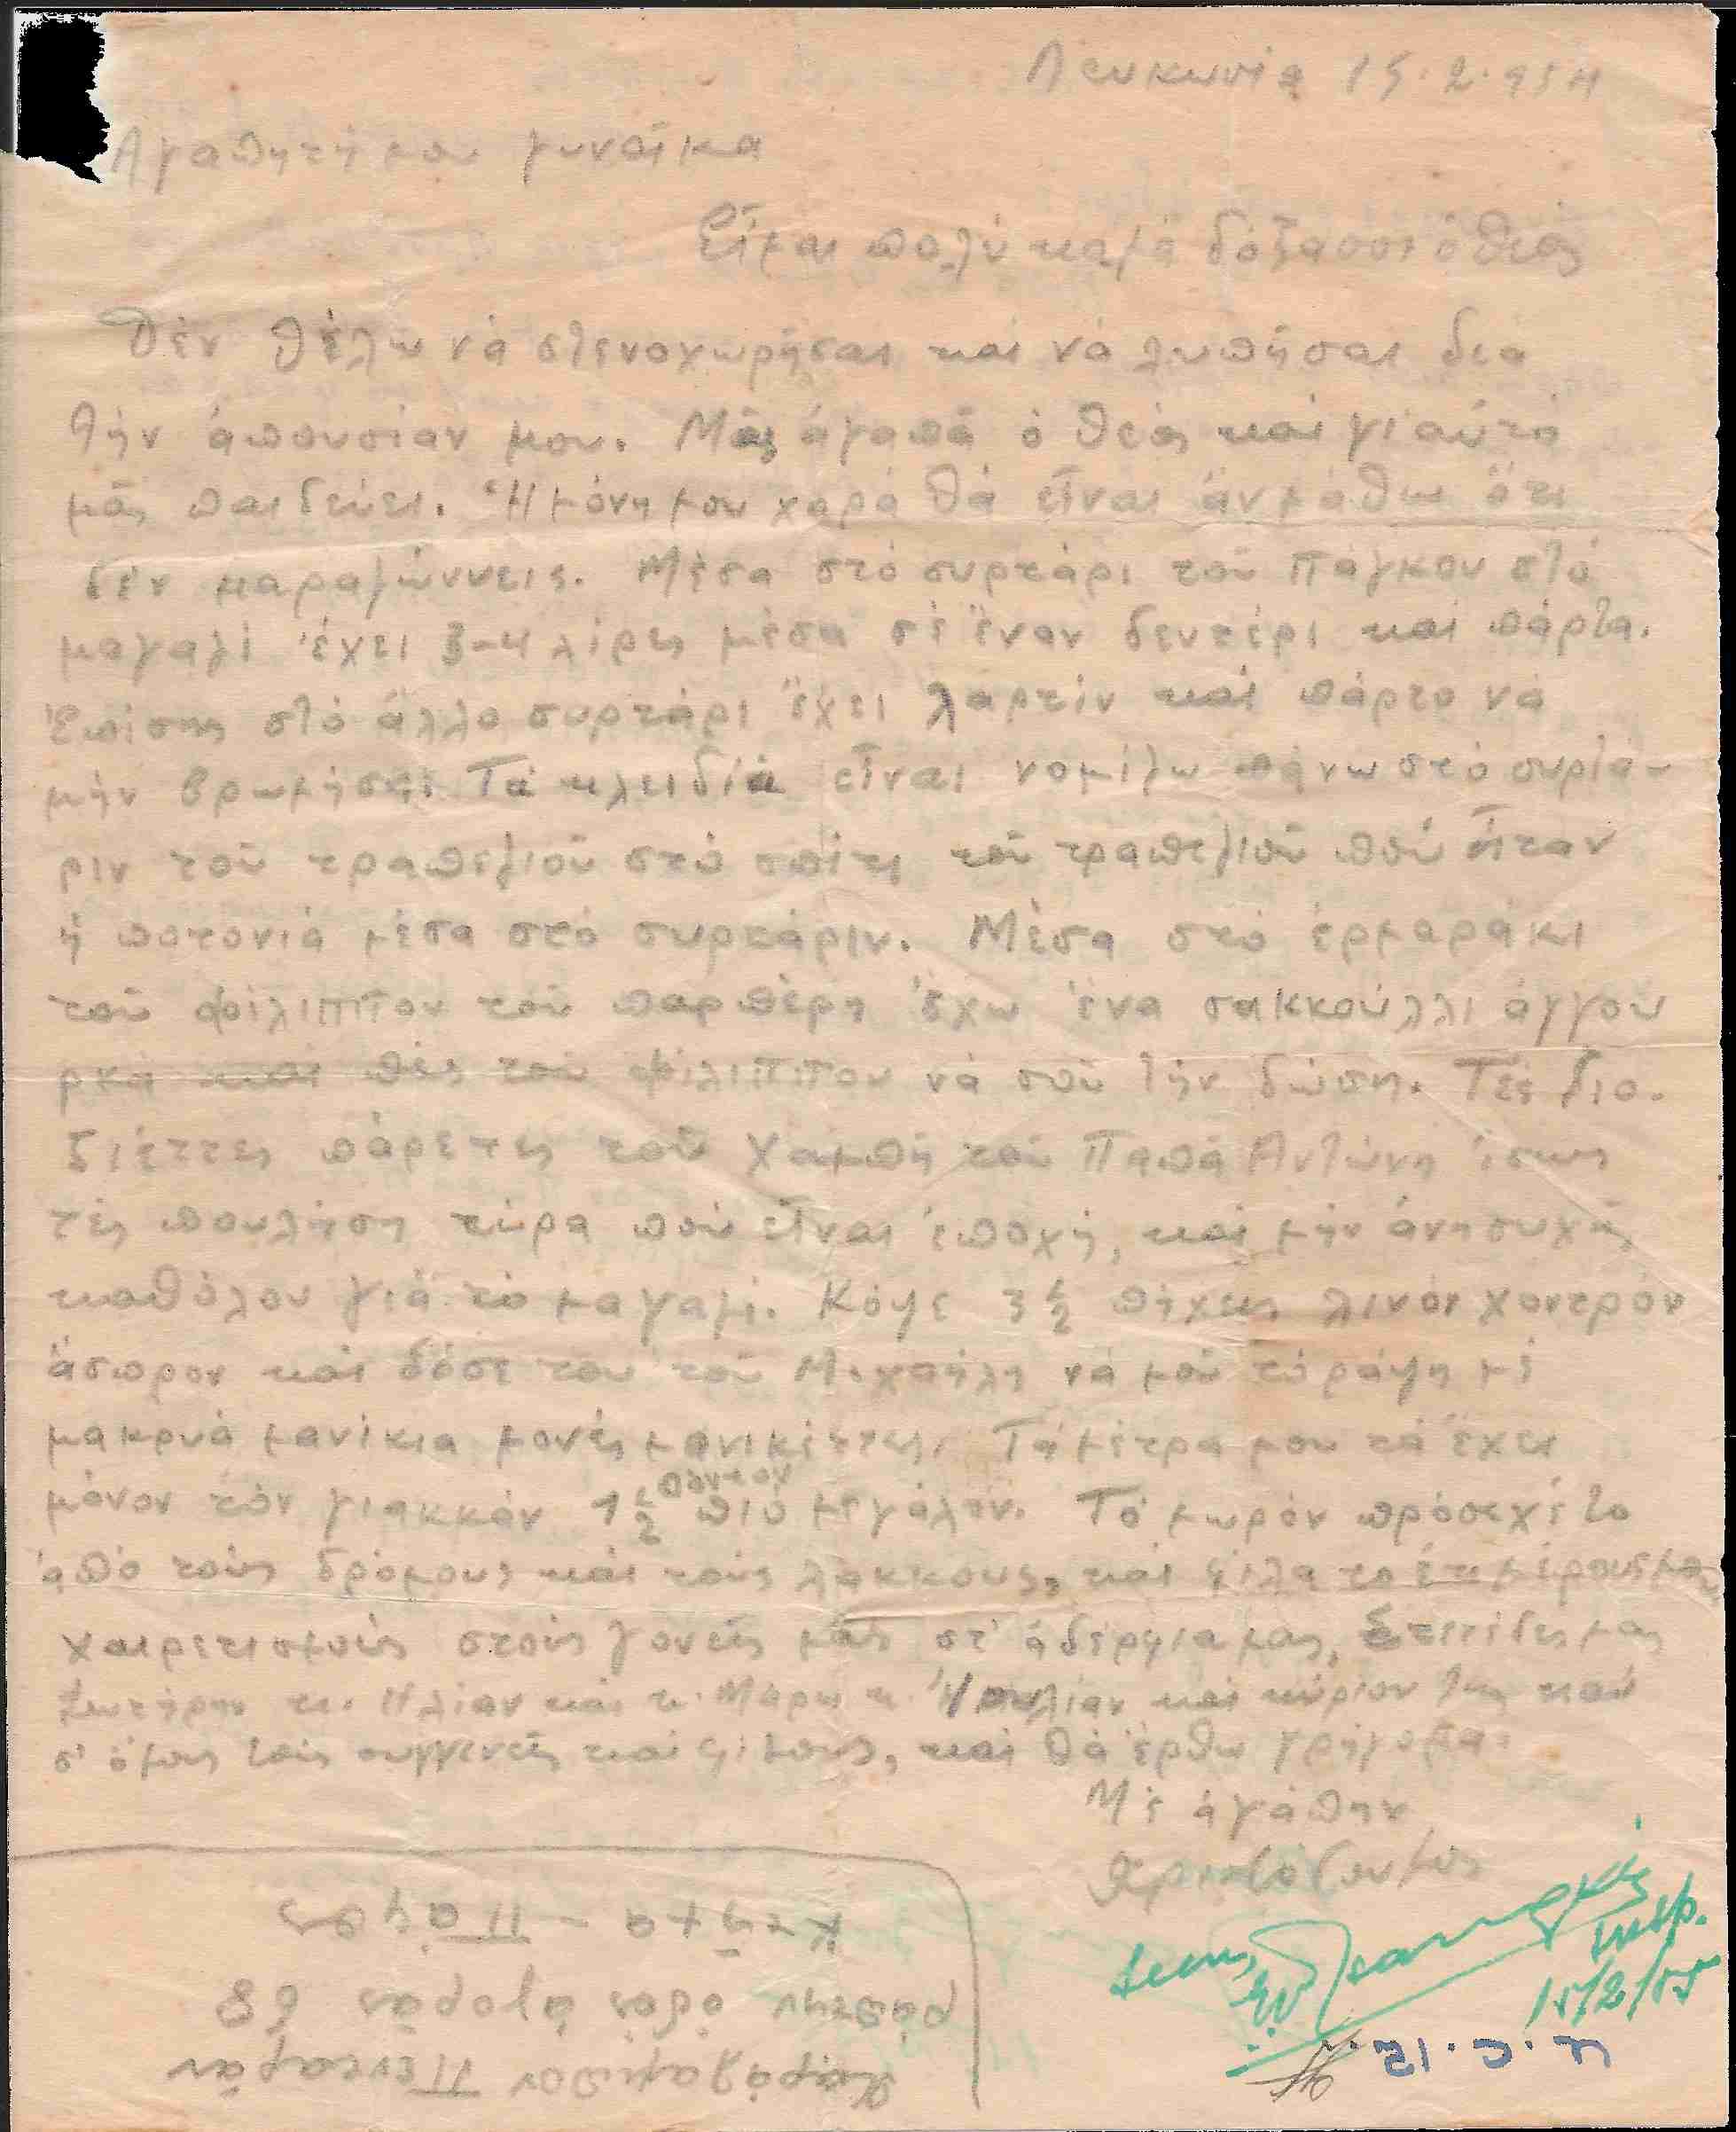 Λευκωσία 15.2.954
Αγαπητή μου γυναῖκα
Εἶμαι πολύ καλά δόξασοι ὁ Θεός
Δέν θέλω νά στενοχωρῆσαι και νά λυπῆσαι διά
τήν ἀπουσίαν μου. Μᾶς ἀγαπᾶ ὁ Θεός και γι αὐτό
μᾶς παιδεύει. Ἡ μόνη μου χαρά θά εἶναι ἄν μάθω ὅτι
δέν μαραζώννεις. Μέσα στό συρτάρι τοῦ Πάγκου στό
μαγαζί ἔχει 3-4 λίρες μέσα σέ ἕναν δευτέρι και πάρτα.
Ἐπίσης στό ἄλλο συρτάρι ἔχει λαρτίν και πάρτο νά
μήν βρωμήσει Τά κλειδιά εἶναι νομίζω πάνω στό συρτά-
ριν τοῦ τραπεζιοῦ στό σπίτι τοῦ τραπεζιοῦ πού ἦταν
ἡ ποτονιά μέσα στό συρτάριν. Μέσα στό ἑρμαράκι
τοῦ Φίλιππου τοῦ παρπέρη ἔχω ἕνα σακκούλλι ἀγγού
ρκα και πές τοῦ Φίλιππου νά σοῦ τήν δώση. Τές
πάρετες τοῦ Χαμπῆ τοῦ Παπά Αντώνη ἴσως
τές πουλήση τώρα πού εἶναι ἐποχή, και μήν ἀνησυχῆς
καθόλου γιά τό μαγαζί. Κόψε 3 1/2 πήχες λινόν χοντρόν
ἄσπρον και δόσε του τοῦ Μιχαήλη νά μοῦ τό ράψη μέ
μακρυά μανίκια μονές μανικέττες. Τά μέτρα μου τά ἔχει
μόνον τόν γιακκάν 1 1/2 πόντον πιό μεγάλον. Τό μωρόν πρόσεχέ το
ἀπό τούς δρόμους και τούς λάκκους, και φίλα το ἐκ μέρους μου
χαιρετισμούς στούς γονεῖς μας στ' ἀδέρφια μας,
Σωτήρην κ. Ηλίαν και κ. Μάρω κ. και κύριον της και
σ' ὅλους τούς συγγενεῖς και φίλους, και θά ἔρθω γρήγορα.
Μέ ἀγάπην
Χριστόδουλος
Insp.
15/2/55
Χαράλαμπον Πενταρᾶν
ράπτην ὁδός ἀγορᾶς 68
Κτῆμα - Πάφος